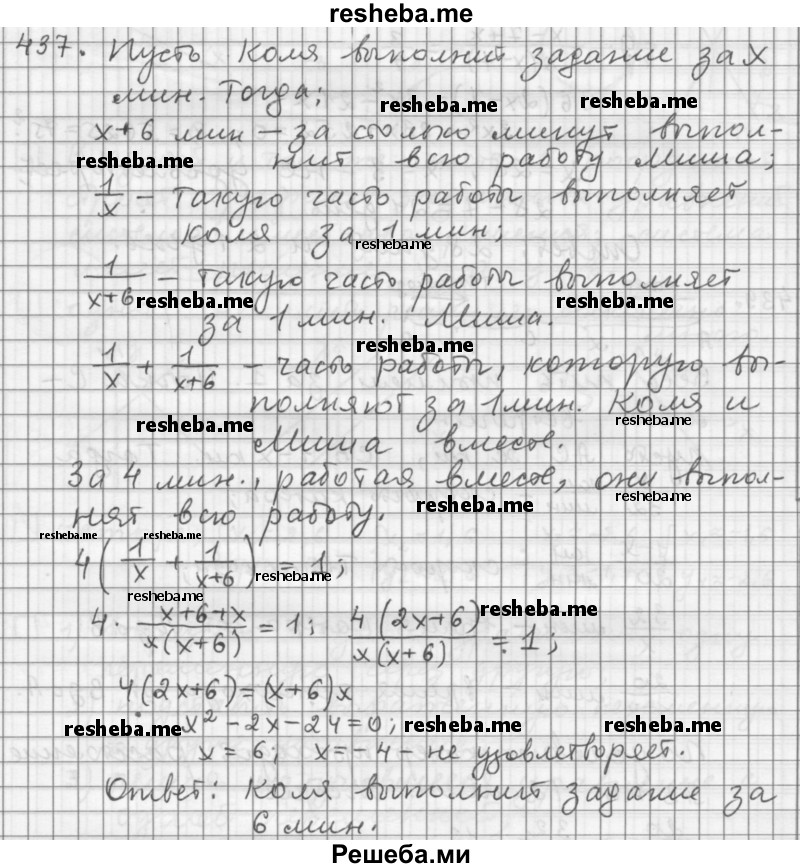 resheba.me
437. Пусть Коля выполнит задание за x
мин. Тогда;
resheba.me resheba.me
x+6 мин – за столько минут выпол-
resheba.me нит всю работу Миша;
1/x – такую часть работы выполняет
Коля за 1 мин;
resheba.me
1/(x+6) – такую часть работы выполняет
resheba.me resheba.me
за 1 мин. Миша.
resheba.me
1/x + 1/(x+6) – часть работы, которую вы-
полняют за 1 мин. Коля и
resheba.me resheba.me
Миша вместе.
За 4 мин., работая вместе, они выпол-
resheba.me resheba.me
нят всю работу.
resheba.me resheba.me
4(1/x + 1/(x+6)) = 1;
resheba.me
resheba.me
4 · (x+6+x)/(x(x+6)) = 1; 4(2x+6)/(x(x+6)) = 1;
resheba.me
4(2x+6)=(x+6)x
resheba.me x² – 2x – 24 = 0; resheba.me resheba.me
x = 6; x = –4 – не удовлетворяет.
Ответ: Коля выполнит задание за
6 мин.
Решеба.ми